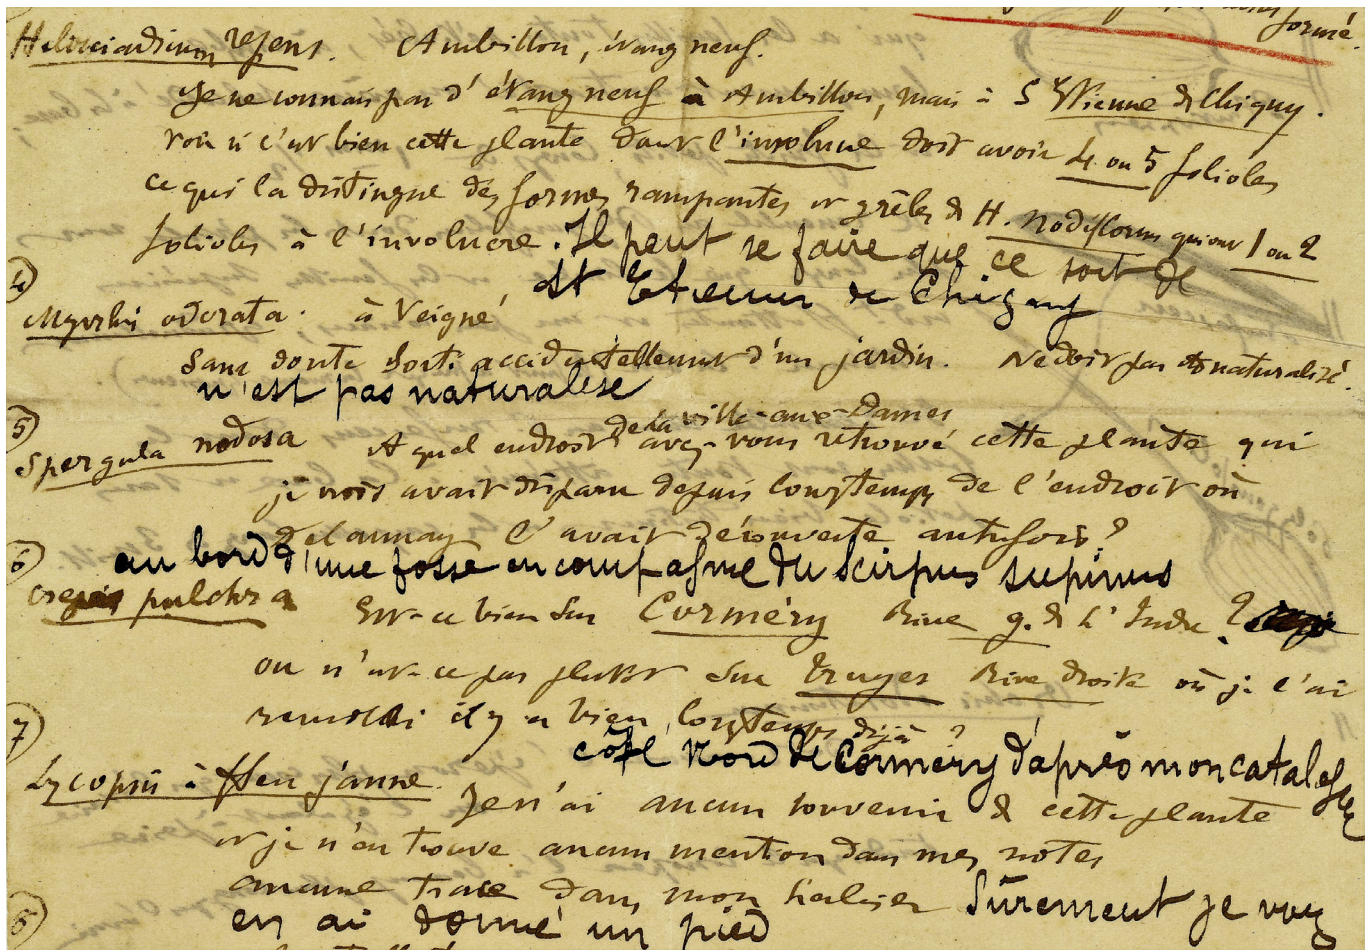 formé.
Helosciadium repens. Ambillou, étang neuf.
Je ne connais pas d'étang neuf à Ambillou, mais à St Etienne de Chigny.
voir si c'est bien cette plante dont l'involucre doit avoir 4 ou 5 folioles
ce qui la distingue des formes rampantes et grêles de H. nodiflorum qui ont 1 ou 2
folioles à l'involucre. Il peut se faire que ce soit de
St Etienne de Chigny
4
Myrrhis odorata. à Veigné
Sans doute sorti accidentellement d'un jardin. Ne doit pas naturalisé.
n'est pas naturalisé
5
de la ville-aux-Dames
Spergula nodosa A quel endroit avez-vous retrouvé cette plante qui
je crois avait disparu depuis longtemps de l'endroit où
Delaunay l'avait découverte autrefois?
6
au bord d'une fosse en compagnie du Scirpus supinus
Crepis pulchra Est-ce bien sur Corméry Rive g. de l'Indre?
ou n'est-ce pas plutôt sur Truyes Rive droite où je l'ai
recueilli il y a bien longtemps déjà?
7
côté Nord de Corméry d'après mon catalogue
Lycopsis à fleur jaune. Je n'ai aucun souvenir de cette plante
et je n'en trouve aucun mention dans mes notes
aucune trace dans mon herbier Sûrement je vous
en ai donné un pied